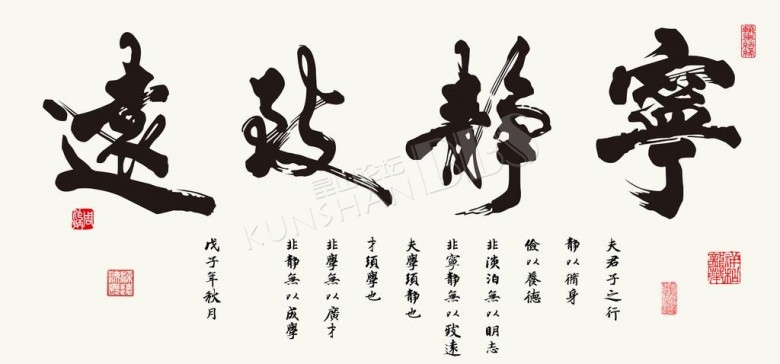 寧靜致遠
夫君子之行
靜以脩身
儉以養德
非淡泊無以明志
非寧靜無以致遠
夫學須靜也
才須學也
非學無以廣才
非靜無以成學
戊子年秋月
KUNSHAN BBS